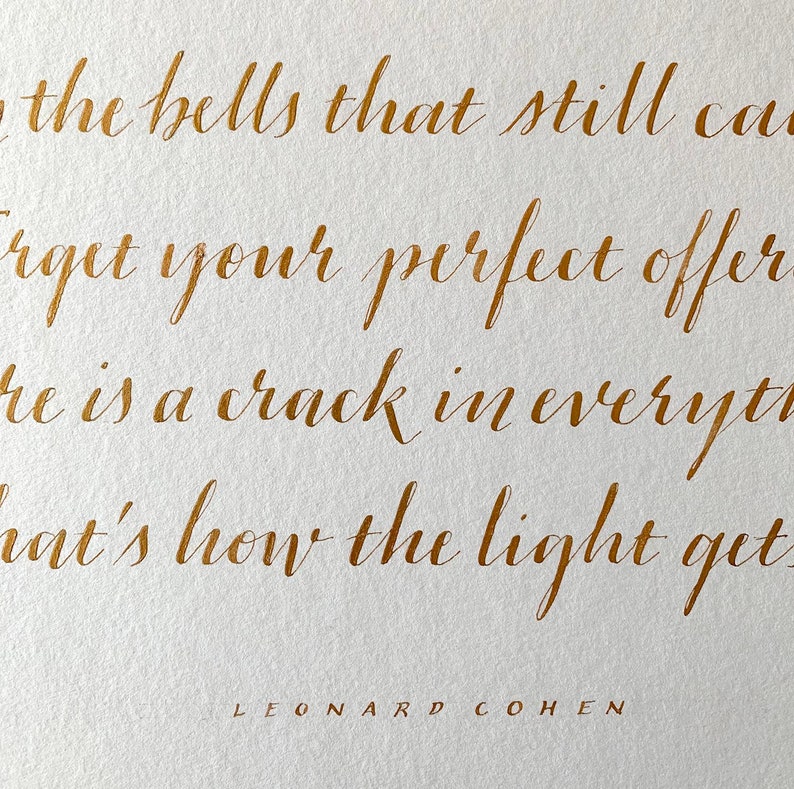 the bells that still can
rget your perfect offer
re is a crack in everyth
hat's how the light gets
LEONARD COHEN